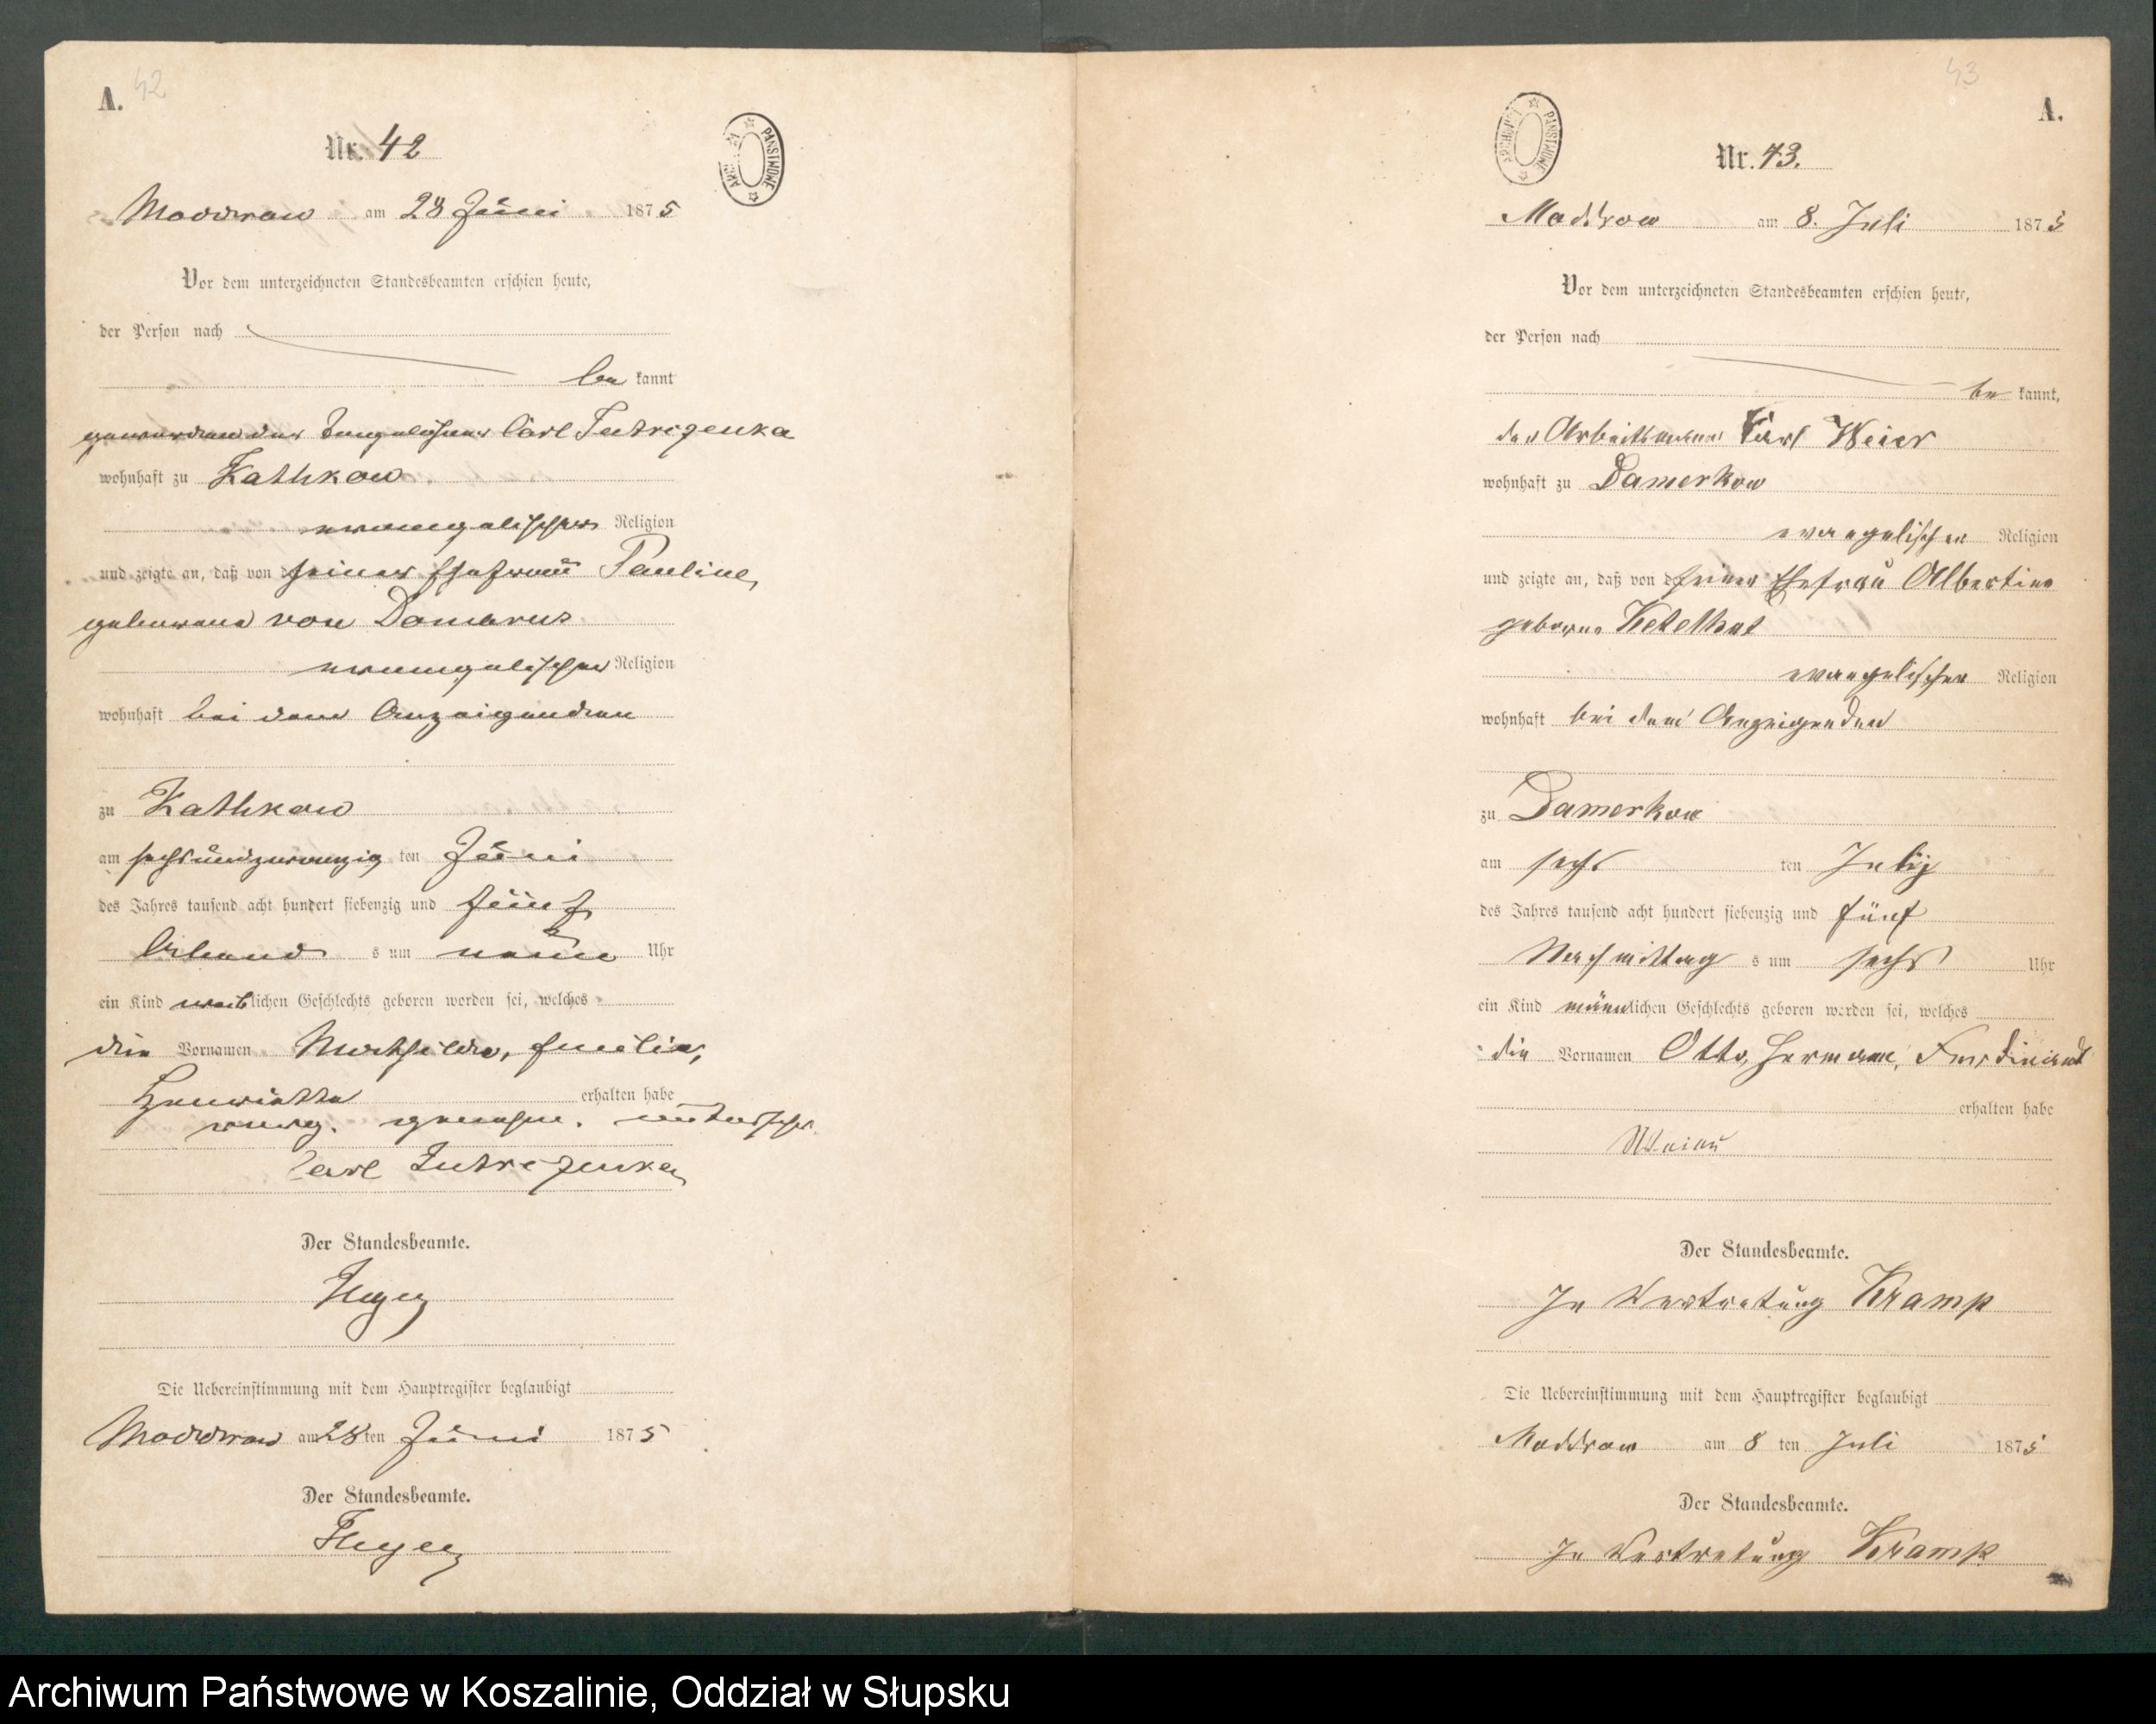 A. 42
Nr. 42
ARCH PAŃSTWOWE
Moddrow am 28 Juni 1875
Vor dem unterzeichneten Standesbeamten erschien heute,
der Person nach
be kannt
der Carl
wohnhaft zu Kathkow
evangelischer Religion
und zeigte an, daß von d seiner Ehefrau Pauline,
geborene von Domarus
evangelischer Religion
wohnhaft bei dem Anzeigenden
zu Kathkow
am sechsundzwanzig ten Juni
des Jahres tausend acht hundert siebenzig und fünf
Abend s um neun Uhr
ein Kind weiblichen Geschlechts geboren worden sei, welches
die Vornamen Mathilde, Emilie,
Henriette erhalten habe
Carl
Der Standesbeamte.
Die Uebereinstimmung mit dem Hauptregister beglaubigt
Moddrow am 28 ten Juni 1875
Der Standesbeamte.
43
A.
ARCHIWUM PAŃSTWOWE
Nr. 43.
Moddrow am 8. Juli 1875
Vor dem unterzeichneten Standesbeamten erschien heute,
der Person nach
be kannt,
der Arbeitsmann Karl Weier
wohnhaft zu Damerkow
evangelischer Religion
und zeigte an, daß von d seiner Ehefrau Albertine
geborne Ketelhut
evangelischer Religion
wohnhaft bei dem Anzeigenden
zu Damerkow
am sechs ten July
des Jahres tausend acht hundert siebenzig und fünf
Nachmittag s um sechs Uhr
ein Kind männlichen Geschlechts geboren worden sei, welches
die Vornamen Otto, Hermann, Ferdinand
erhalten habe
Der Standesbeamte.
In Vertretung Kramp
Die Uebereinstimmung mit dem Hauptregister beglaubigt
Moddrow am 8 ten Juli 1875
Der Standesbeamte.
In Vertretung Kramp
Archiwum Państwowe w Koszalinie, Oddział w Słupsku